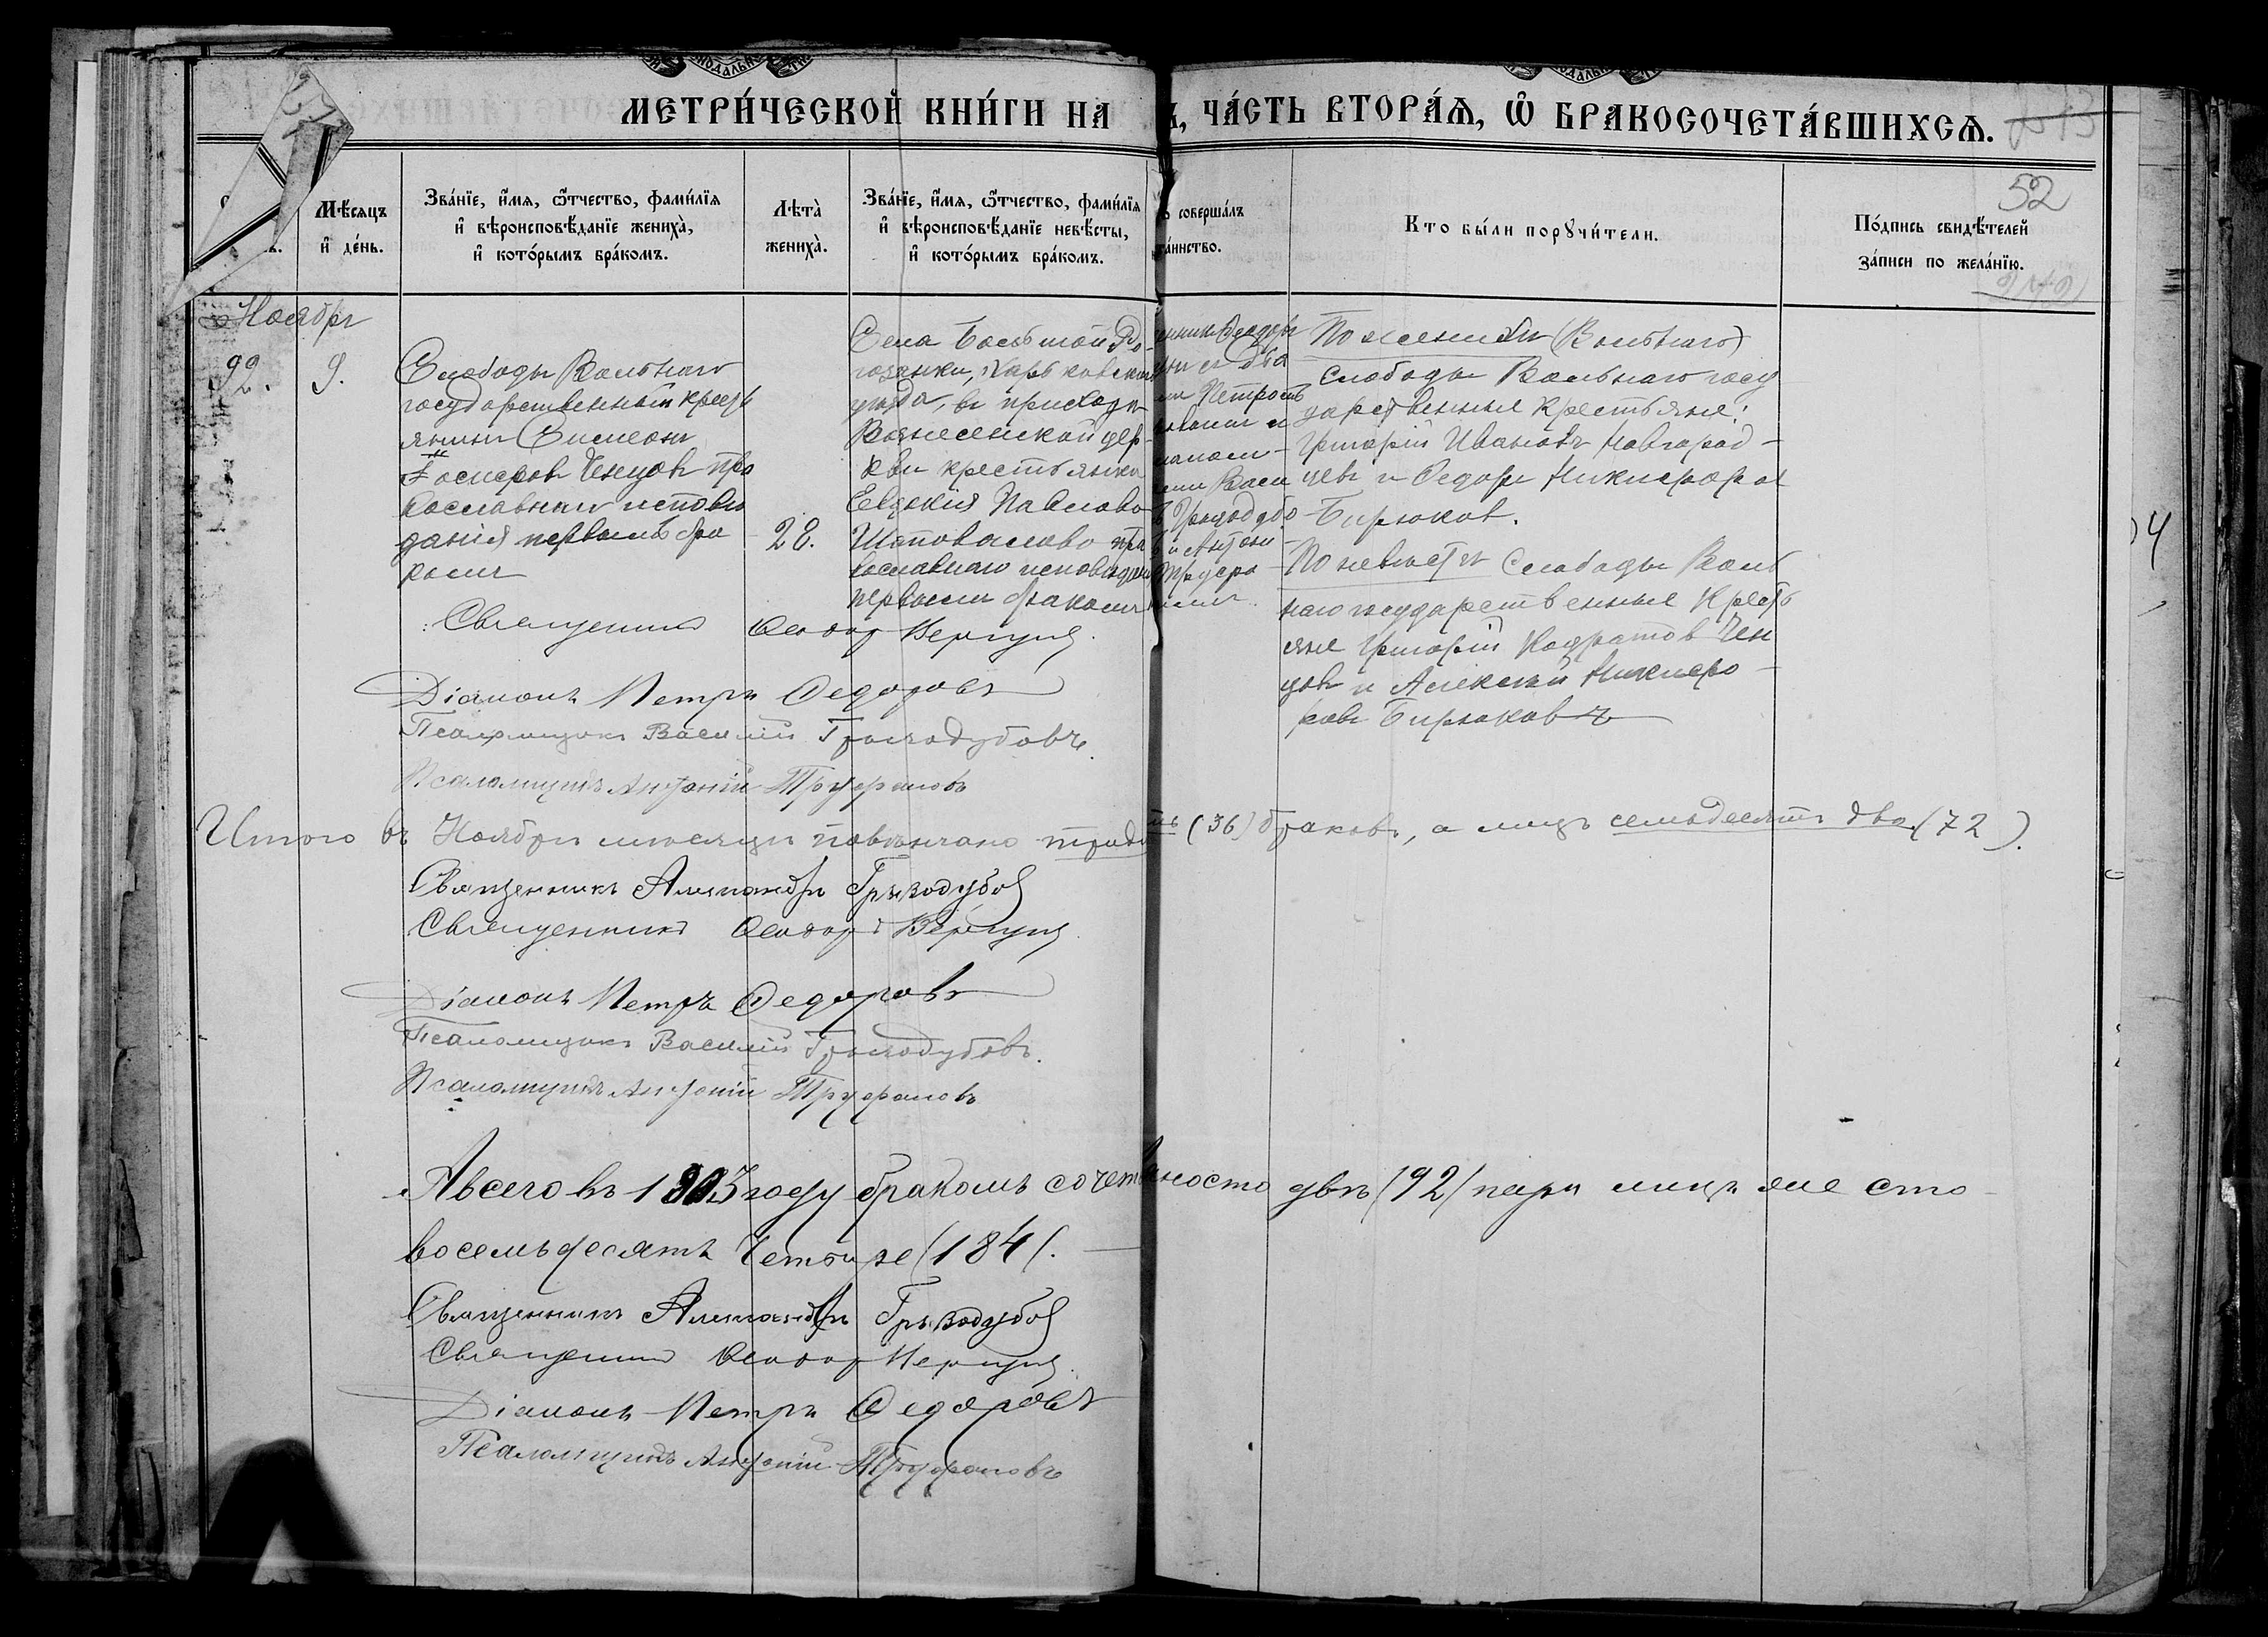 МЕТРИ́ЧЕСКОЙ КНИ́ГИ НА
, ЧА́СТЬ ВТОРА́Ѧ, Ѽ БРАКОСОЧЕТА́ВШИХСѦ.
52
Мѣ́сяцъ и де́нь.
Зва́нїе, и́мя, ѻ́тчество, фами́лїя и вѣроисповѣ́данїе жениха̀, и кото́рымъ бра́комъ.
Лѣта̀ жениха̀.
Зва́нїе, и́мя, ѻ́тчество, фами́лїя и вѣроисповѣ́данїе невѣ́сты, и кото́рымъ бра́комъ.
соверша́лъ
та́инство.
Кто бы́ли порꙋчи́тели.
По́дпись свидѣ́телей за́писи по жела́нїю.
Ноября
92.
9.
Слободы Вольнаго
государственный кресть
янинъ Симеонъ
Ченцовъ пра
вославнаго исповѣ
данія первымъ бра
комъ
28.
Села Большой Ро-
гозянки, Харьковскаго
уѣзда, въ приходѣ
Вознесенской цер-
кви крестьянка
Евдокія Павлова
Шаповалова пра
вославнаго исповѣданія
первымъ бракомъ
По женихѣ (Вольнаго)
слободы Вольнаго госу
дарственные крестьяне:
Григорій Ивановъ Новгород-
цевъ и Федоръ Никифоровъ
Бирюков.
По невѣстѣ Слободы Воль
наго государственные кресть
яне Григорій Кодратов Чен
цовъ и Алексѣй Никифо-
ровъ Бирюковъ
Священникъ Ѳеодоръ Вергунъ
Діаконъ Петръ Федоровъ
Псаломщикъ Василій Грызодубовъ.
Псаломщикъ Антоній Труфановъ
Итого въ Ноябрѣ мѣсяцѣ повѣнчано тридц
ть (36) браковъ, а лицъ семьдесятъ два (72).
Священникъ Александръ Грызодубов
Священникъ Ѳеодоръ Вергунъ
Діаконъ Петръ Федоровъ
Псаломщикъ Василій Грызодубовъ.
Псаломщикъ Антоній Труфановъ
А всего въ году бракомъ сочет
яносто двѣ (92) пары лицъ же сто
восемьдесятъ четыре (184).
Священникъ Александръ Грызодубов
Священникъ Ѳеодоръ Вергунъ
Діаконъ Петръ Федоровъ
Псаломщикъ Антоній Труфановъ